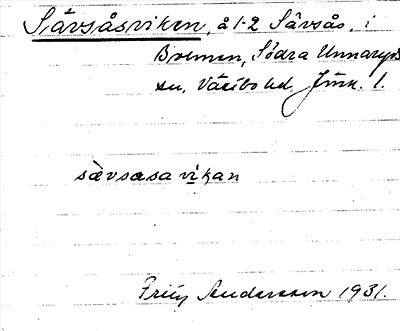 Sävsåsviken, å 1-2 Sävsås, i
Bolmen, Södra Unnaryds
sn, Västbo hd, Jönk. l.
sävsasa vikan
Frily Andersson 1931.